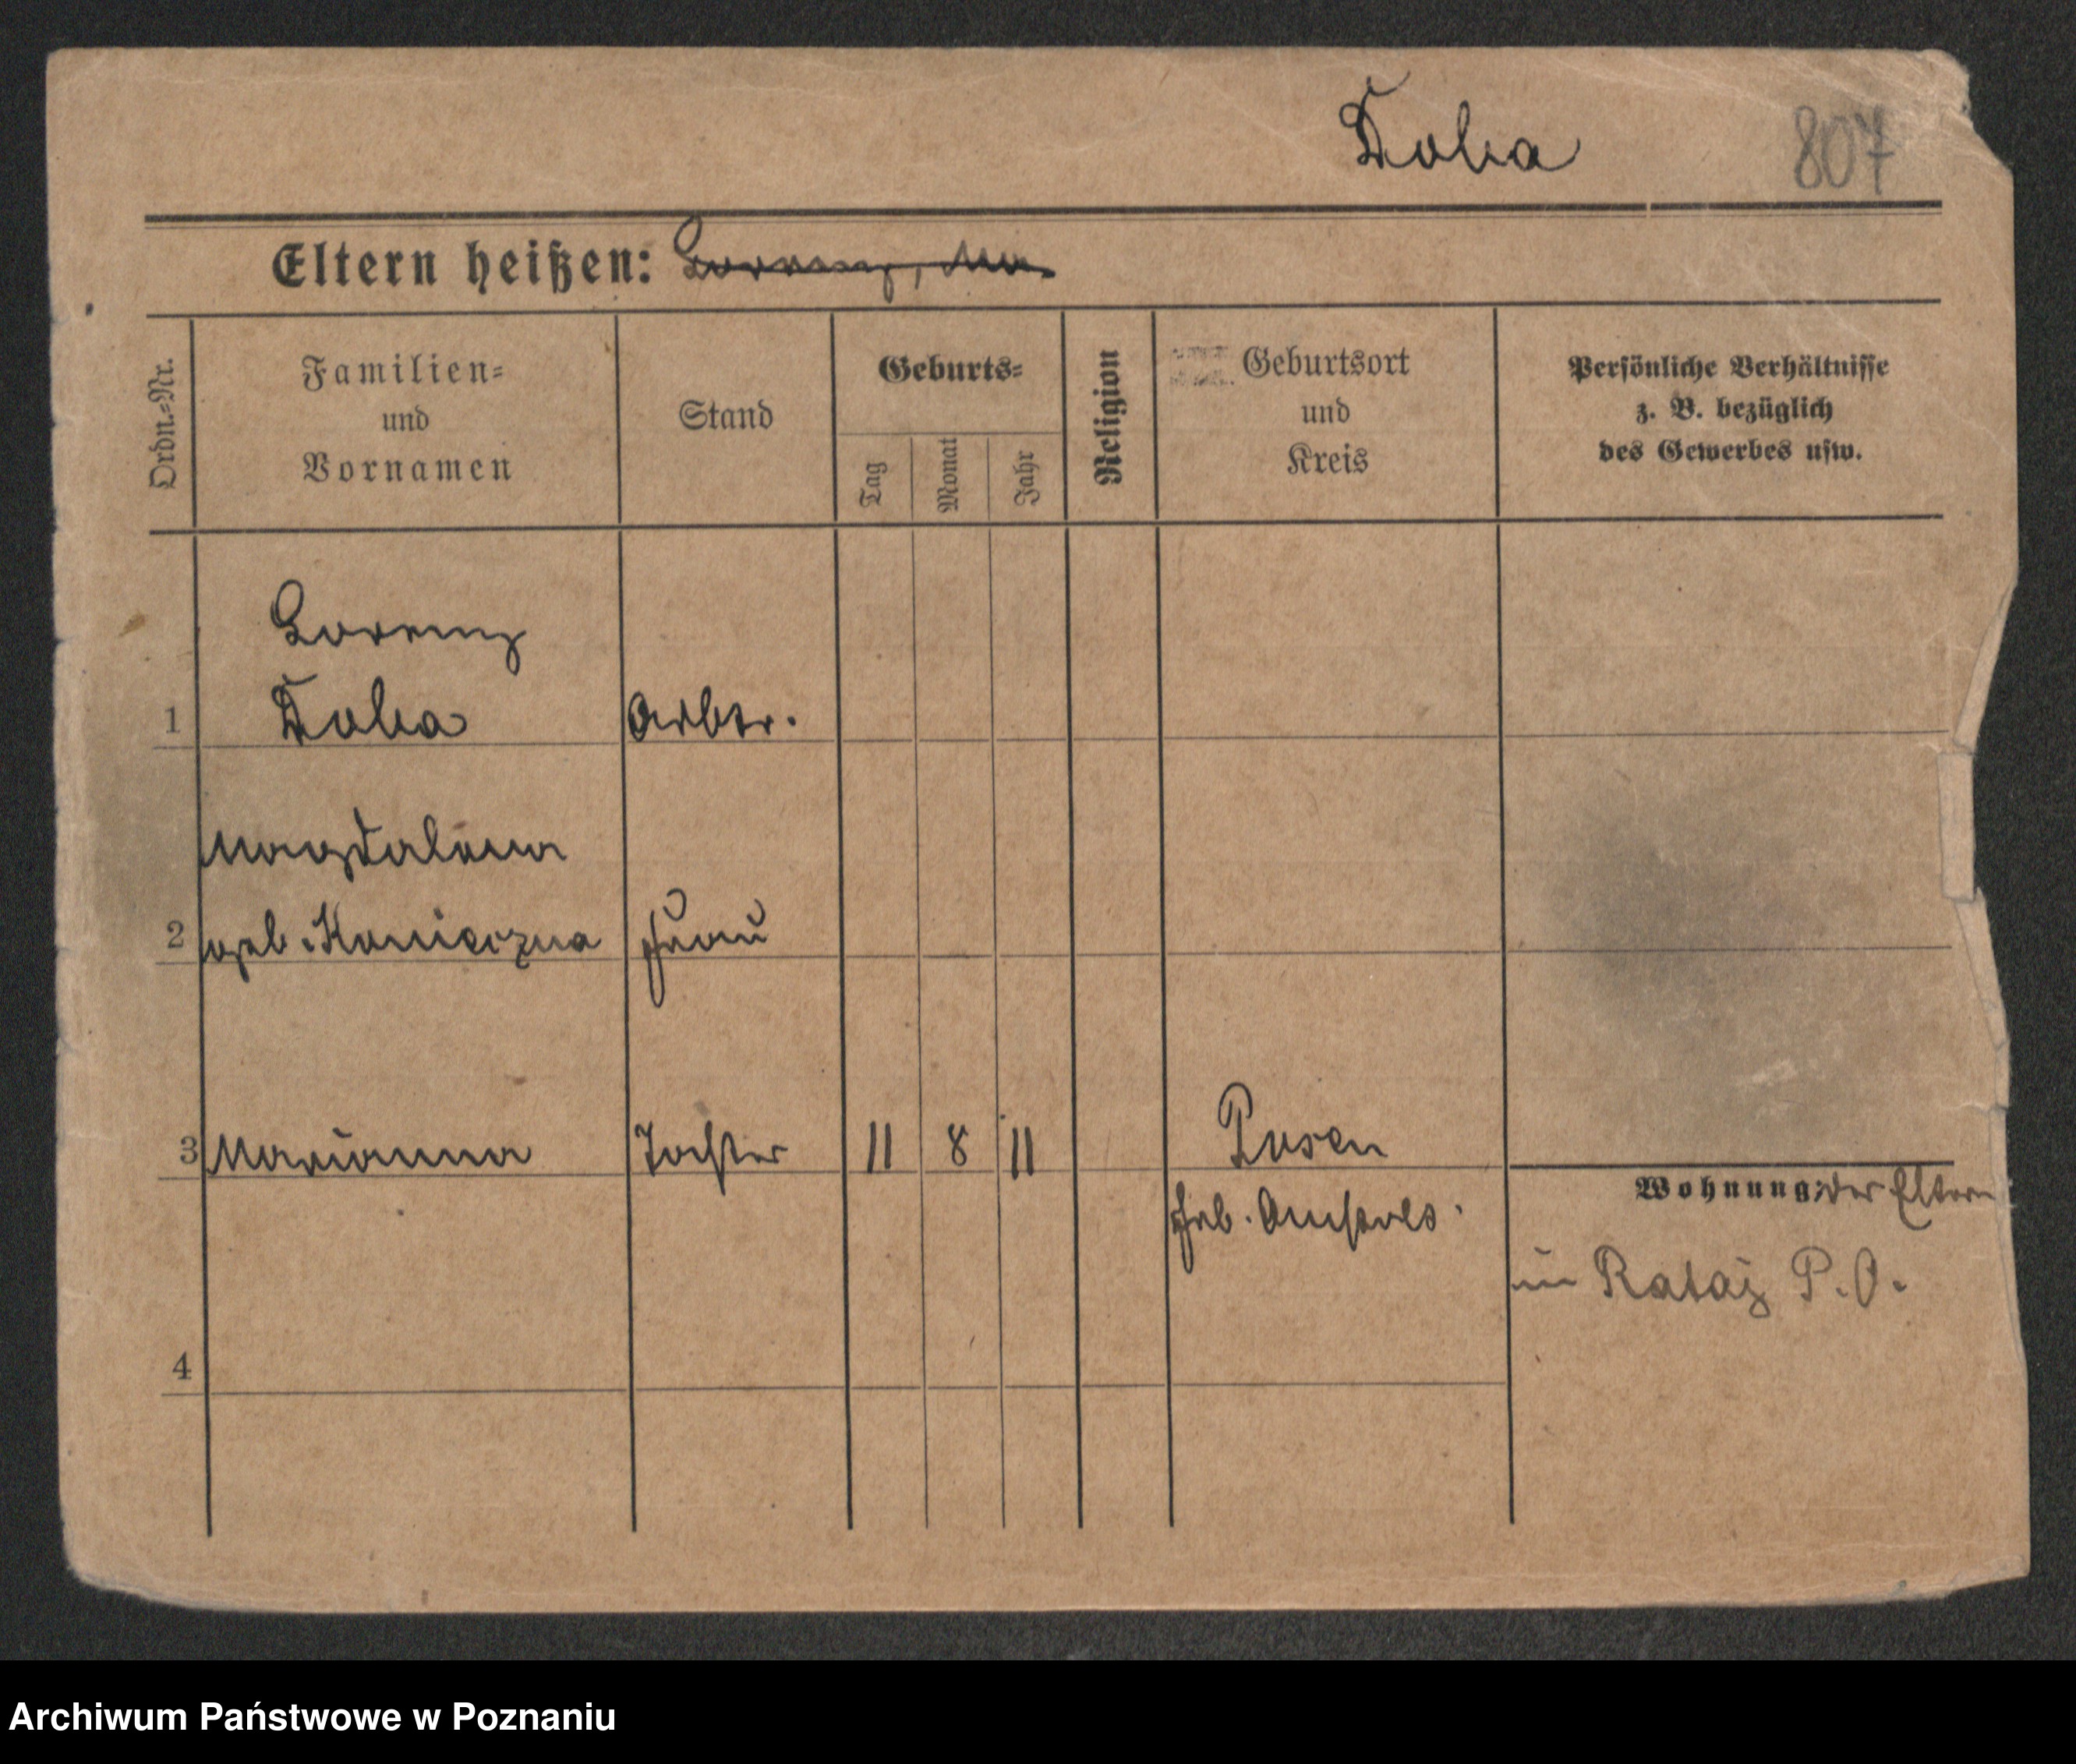 Doba
807
Eltern heißen: Lorenz, Ma.
Ordn.=Nr.
Familien=
und
Vornamen
Stand
Geburts=
Tag
Monat
Jahr
Religion
Geburtsort
und
Kreis
Persönliche Verhältnisse
z. B. bezüglich
des Gewerbes usw.
Lorenz
1 Doba Arbtr.
Magdalena
2 geb. Konieczna Frau
3 Marianna Tochter 11 8 11 Posen
Wohnung: der Eltern
in Rataj P.O.
4
Archiwum Państwowe w Poznaniu